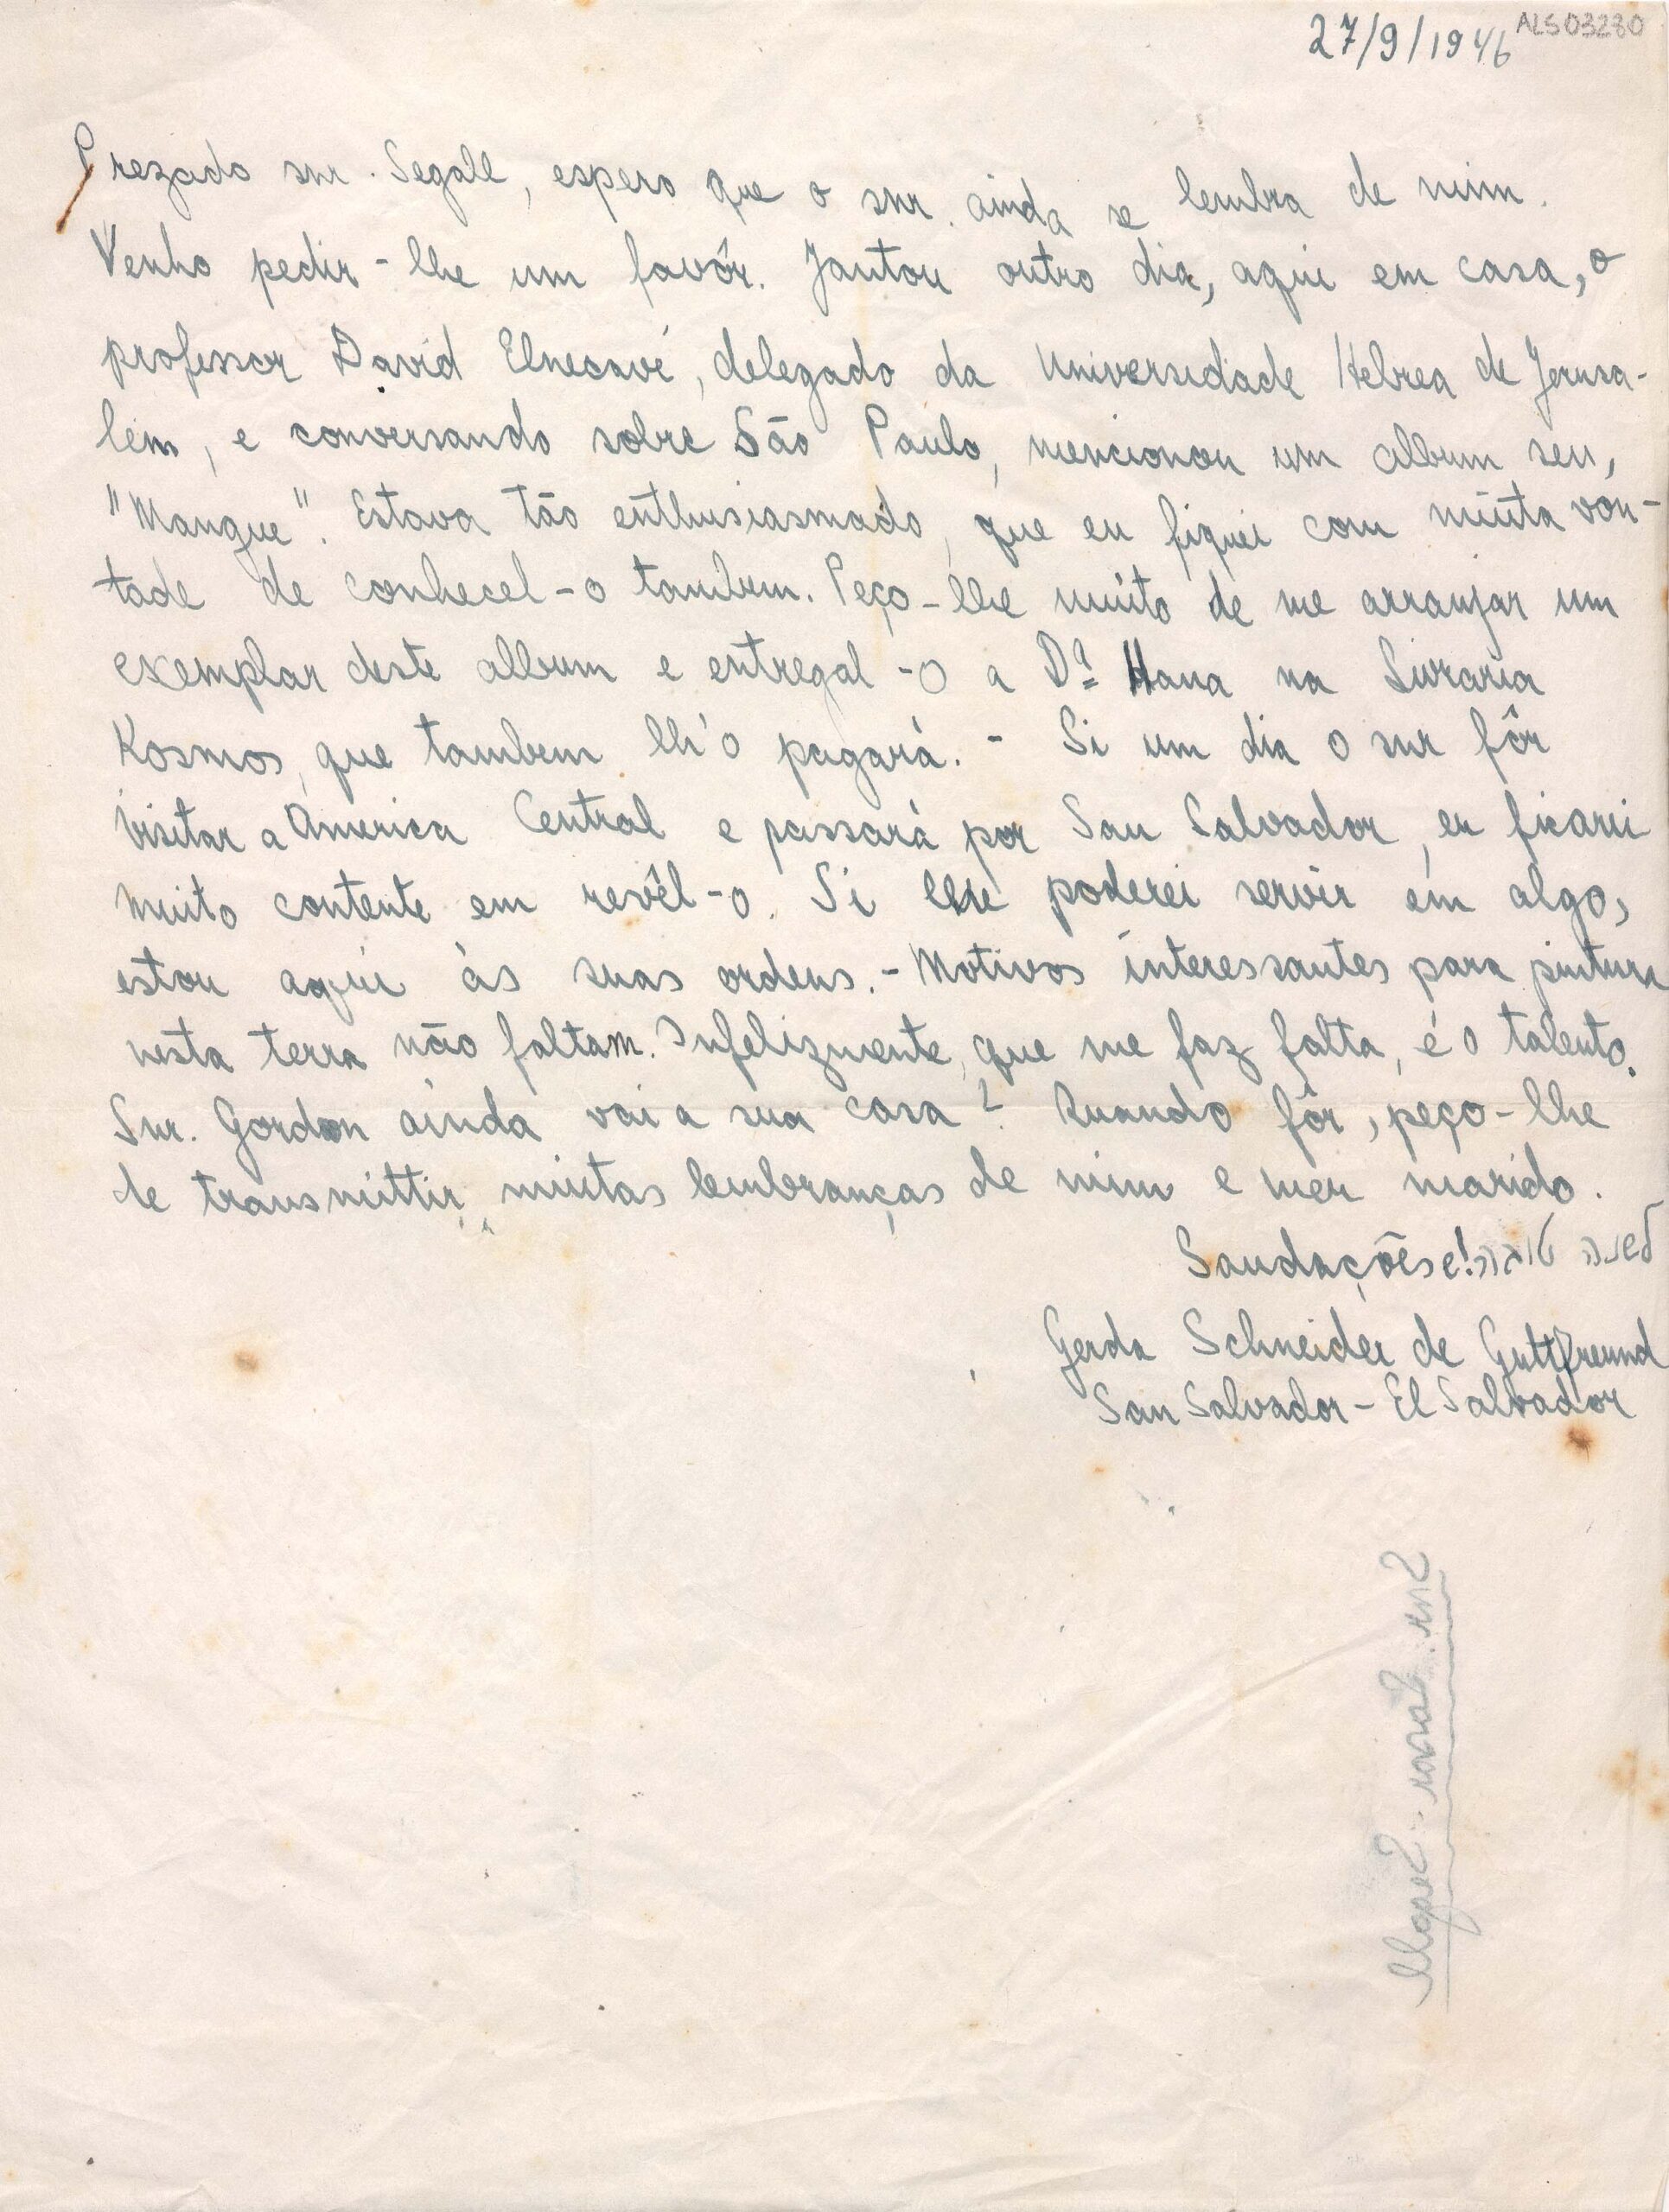 27/9/1946 ALS03280
Prezado snr. Segall, espero que o snr. ainda se lembra de mim.
Venho pedir-lhe um favôr. Jantou outro dia, aqui em casa, o
professor David Elnecavé, delegado da Universidade Hebrea de Jerusa-
lém, e conversando sobre São Paulo, mencionou um album seu,
"Mangue". Estava tão enthusiasmado, que eu fiquei com muita von-
tade de conhecel-o tambem. Peço-lhe muito de me arranjar um
exemplar deste album e entregal-o a Dª Hana na Livraria
Kosmos, que tambem lh'o pagará. - Si um dia o snr fôr
visitar a America Central e passará por San Salvador, eu ficarei
muito contente em revêl-o. Si lhe poderei servir em algo,
estou aqui às suas ordens. - Motivos interessantes para pintura
nesta terra não faltam. Infelizmente, que me faz falta, é o talento.
Snr. Gordon ainda vai a sua casa? Quando fôr, peço-lhe
de transmittir muitas lembranças de mim e meu marido.
Saudações e! לשנה טובה
Gerda Schneider de Guttfreund
San Salvador - El Salvador
Snr. Lasar Segall